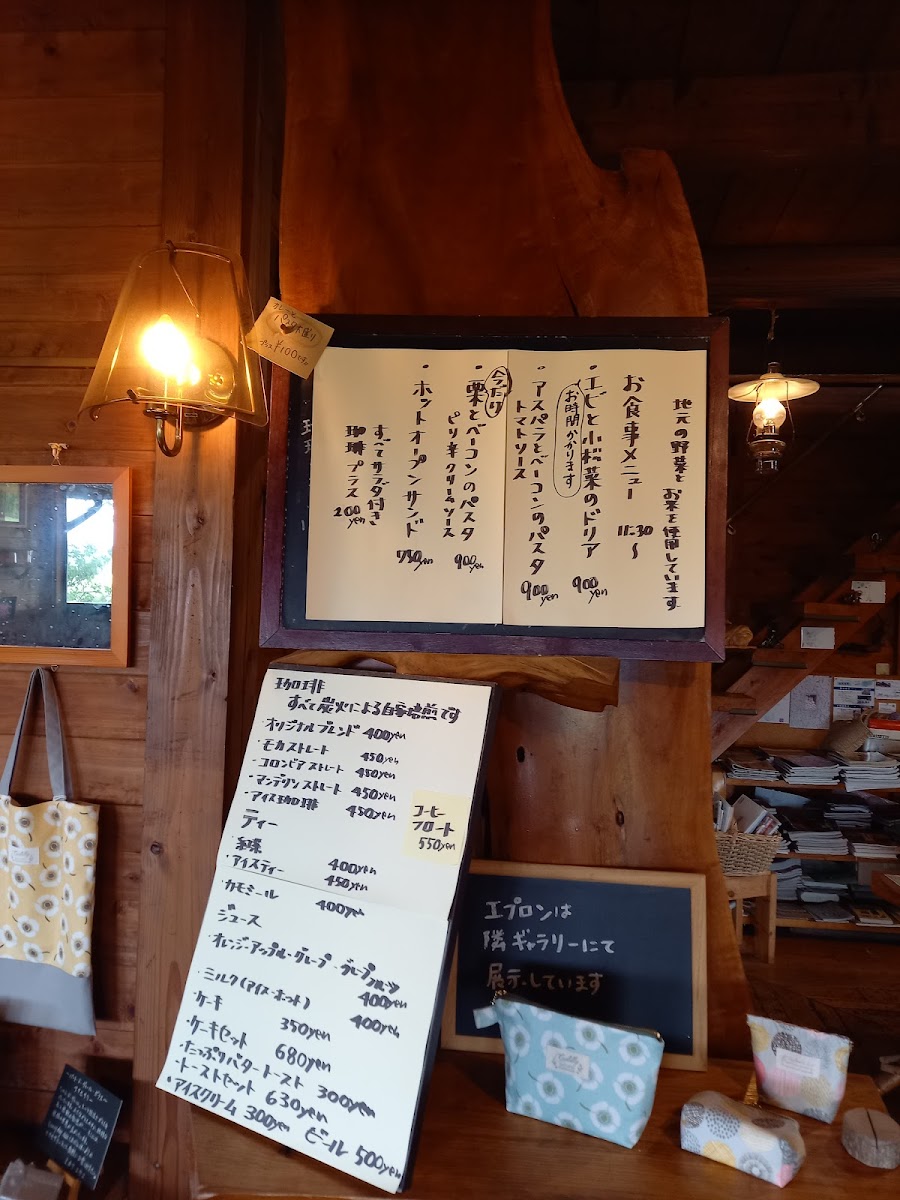 地元の野菜と
お米を使用しています
お食事メニュー 11:30〜
・エビと小松菜のドリア 900yen
お時間かかります
・アスパラとベーコンのパスタ
トマトソース 900yen
今だけ
・栗とベーコンのパスタ
ピリ辛クリームソース 900yen
・ホットオープンサンド 750yen
すべてサラダ付き
珈琲プラス 200yen
珈琲
すべて炭火による自家焙煎です
・オリジナルブレンド 400yen
・モカストレート 450yen
・コロンビアストレート 450yen
・マンデリンストレート 450yen
・アイス珈琲 450yen
コーヒー
フロート
550yen
ティー
・紅茶 400yen
・アイスティー 450yen
・カモミール 400yen
ジュース
・オレンジ・アップル・グレープ・グレープフルーツ 400yen
・ミルク(アイス・ホット) 400yen
・ケーキ 350yen
・ケーキセット 680yen
・たっぷりバタートースト 300yen
・トーストセット 630yen
・アイスクリーム 300yen ビール 500yen
エプロンは
隣ギャラリーにて
展示しています